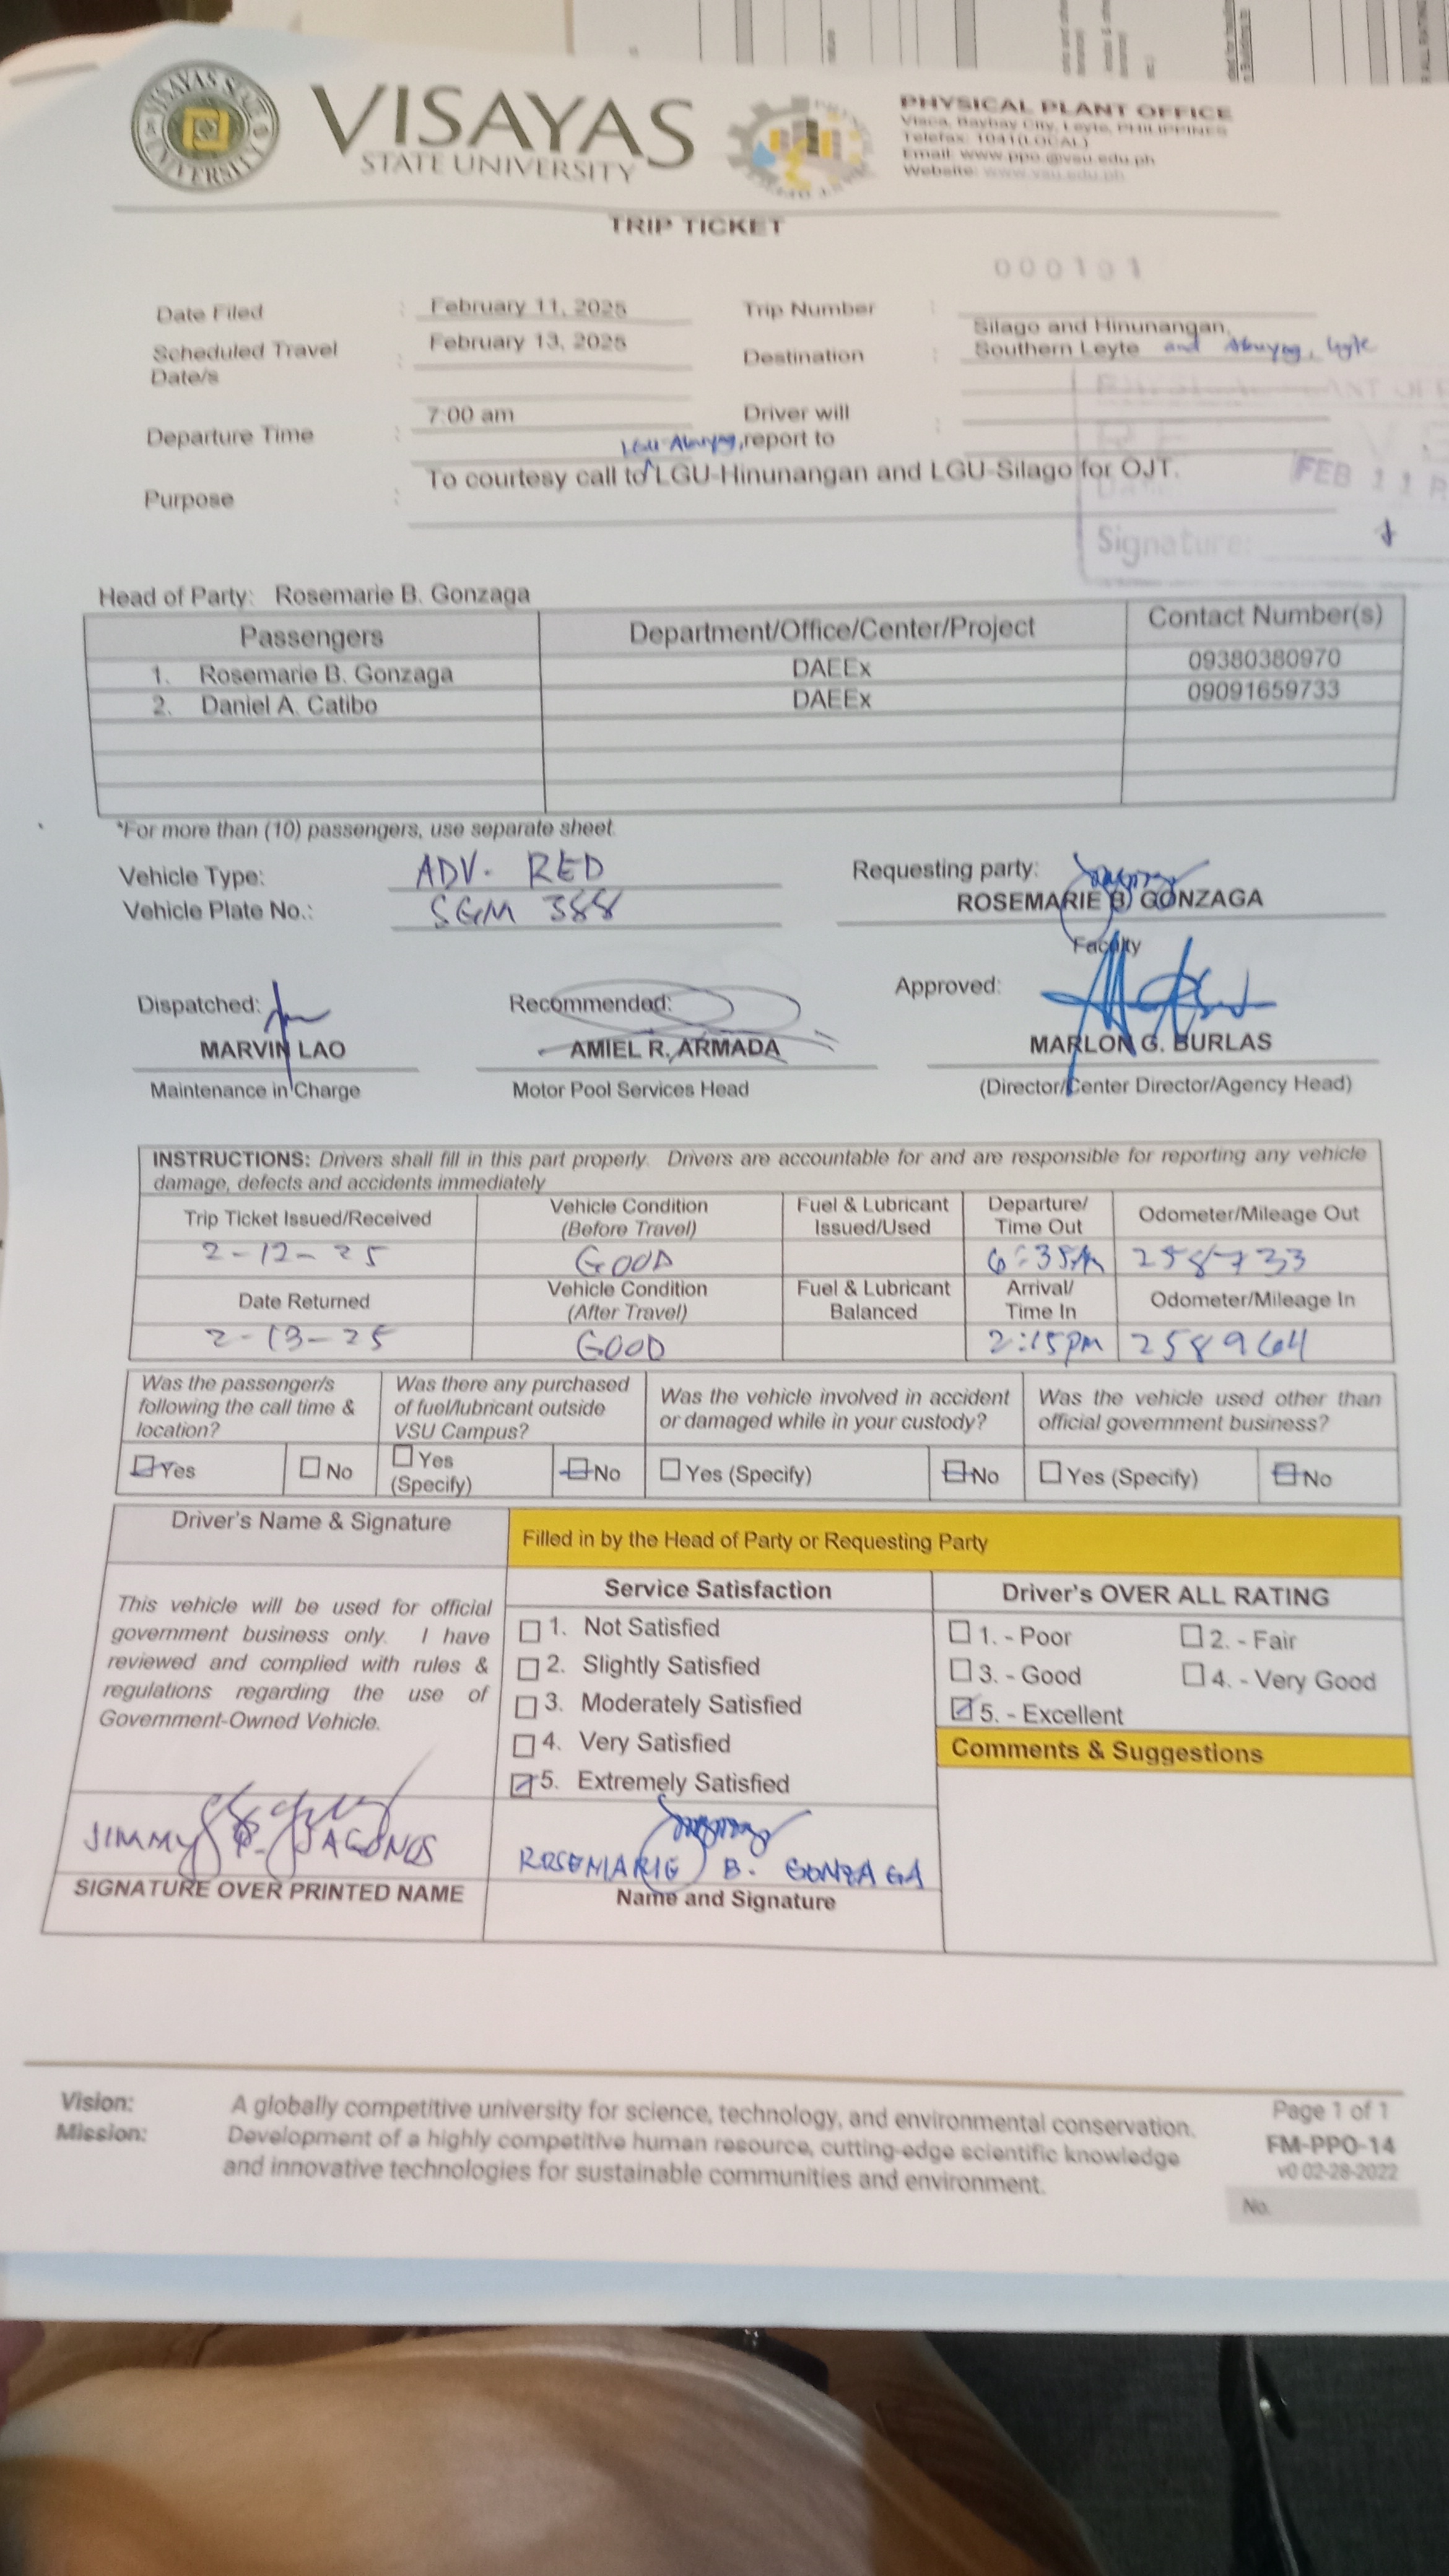 VISAYAS STATE UNIVERSITY
VISAYAS
STATE UNIVERSITY
PHYSICAL PLANT OFFICE
Visca, Baybay City, Leyte, PHILIPPINES
Telefax: 1041(LOCAL)
Email: www.ppo.@vsu.edu.ph
Website: www.vsu.edu.ph
TRIP TICKET
000101
Date Filed : February 11, 2025 Trip Number :
Scheduled Travel Date/s : February 13, 2025 Destination : Silago and Hinunangan, Southern Leyte and Abuyog, Leyte
Departure Time : 7:00 am Driver will report to :
LGU-Abuyog,
Purpose : To courtesy call to LGU-Hinunangan and LGU-Silago for OJT.
FEB 11
Signature:
Head of Party: Rosemarie B. Gonzaga
Passengers Department/Office/Center/Project Contact Number(s)
1. Rosemarie B. Gonzaga DAEEx 09380380970
2. Daniel A. Catibo DAEEx 09091659733
*For more than (10) passengers, use separate sheet
Vehicle Type: ADV. RED Requesting party:
Vehicle Plate No.: SGM 388 ROSEMARIE B. GONZAGA
Faculty
Dispatched: Recommended: Approved:
MARVIN LAO AMIEL R. ARMADA MARLON G. BURLAS
Maintenance in Charge Motor Pool Services Head (Director/Center Director/Agency Head)
INSTRUCTIONS: Drivers shall fill in this part properly. Drivers are accountable for and are responsible for reporting any vehicle
damage, defects and accidents immediately
Trip Ticket Issued/Received Vehicle Condition (Before Travel) Fuel & Lubricant Issued/Used Departure/ Time Out Odometer/Mileage Out
2-12-25 GOOD 6:35AM 258733
Date Returned Vehicle Condition (After Travel) Fuel & Lubricant Balanced Arrival/ Time In Odometer/Mileage In
2-13-25 GOOD 2:15pm 258964
Was the passenger/s following the call time & location? Was there any purchased of fuel/lubricant outside VSU Campus? Was the vehicle involved in accident or damaged while in your custody? Was the vehicle used other than official government business?
Yes No Yes (Specify) No Yes (Specify) No Yes (Specify) No
Driver's Name & Signature
Filled in by the Head of Party or Requesting Party
This vehicle will be used for official
government business only. I have
reviewed and complied with rules &
regulations regarding the use of
Government-Owned Vehicle.
Service Satisfaction
1. Not Satisfied
2. Slightly Satisfied
3. Moderately Satisfied
4. Very Satisfied
5. Extremely Satisfied
Driver's OVER ALL RATING
1. - Poor 2. - Fair
3. - Good 4. - Very Good
5. - Excellent
Comments & Suggestions
ROSEMARIE B. GONZAGA
SIGNATURE OVER PRINTED NAME
Name and Signature
Vision: A globally competitive university for science, technology, and environmental conservation.
Mission: Development of a highly competitive human resource, cutting-edge scientific knowledge
and innovative technologies for sustainable communities and environment.
Page 1 of 1
FM-PPO-14
v0 02-28-2022
No.